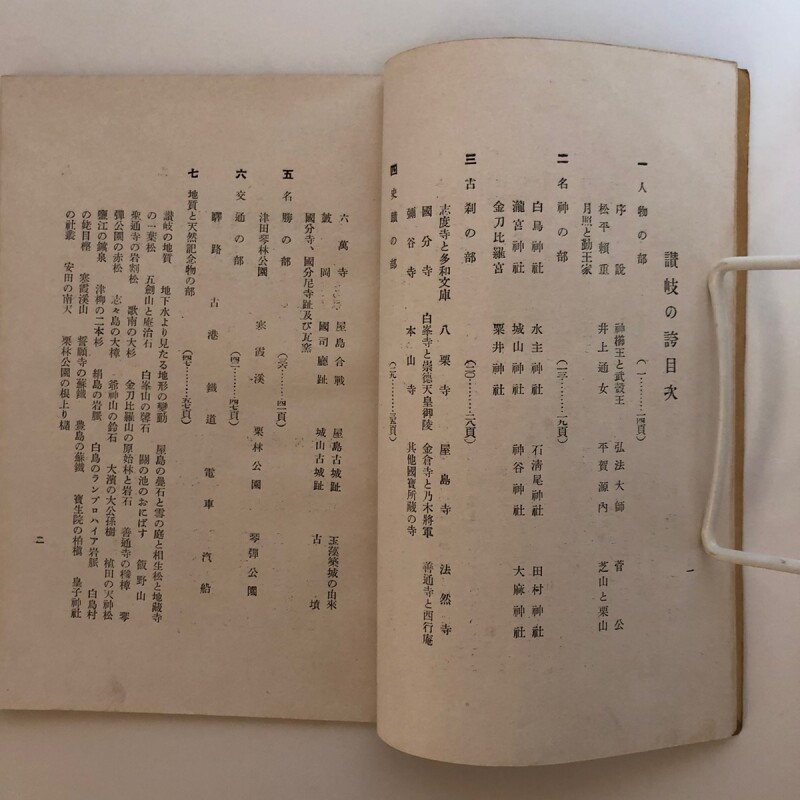 讃岐の誇目次
一 人物の部 (一………一四頁)
序說 神櫛王と武殼王 弘法大師 菅公
松平賴重 井上通女 平賀源內 芝山と栗山
月照と勤王家
二 名神の部 (一三………一九頁)
白鳥神社 水主神社 石淸尾神社 田村神社
瀧宮神社 城山神社 神谷神社 大麻神社
金刀比羅宮 粟井神社
三 古刹の部 (二〇………二八頁)
志度寺と多和文庫 八栗寺 屋島寺 法然寺
國分寺 白峯寺と崇德天皇御陵 金倉寺と乃木將軍 善通寺と西行庵
彌谷寺 本山寺 其他國寶所藏の寺
四 史蹟の部
六萬寺 屋島合戰 屋島古城趾 玉藻築城の由來
鼓岡 國司廳趾 城山古城趾 古墳
國分寺、國分尼寺趾及び瓦窯
五 名勝の部 (三六………四一頁)
津田琴林公園 寒霞溪 栗林公園 琴彈公園
六 交通の部 (四一………四七頁)
驛路 古港 鐵道 電車 汽船
七 地質と天然記念物の部 (四七………五七頁)
讃岐の地質 地下水より見たる地形の變動 屋島の疊石と雪の庭と相生松と地藏寺
の一葉松 五劍山と庵治石 白峯山の磬石 關の池のおにばす 飯野山
聖通寺の岩割松 歌南の大杉 金刀比羅山の原始林と岩石 善通寺の樟 琴
彈公園の赤松 志々島の大樟 爺神山の鈴石 大濱の大公孫樹 植田の天神松
鹽江の鑛泉 津柳の二本杉 絹島の岩脈 白鳥のランプロハイア岩脈 白鳥村
の姥目樫 寒霞溪山 誓願寺の蘇鐵 豊島の蘇鐵 寶生院の柏槇 皇子神社
の社叢 安田の南天 栗林公園の根上り樟
一
二